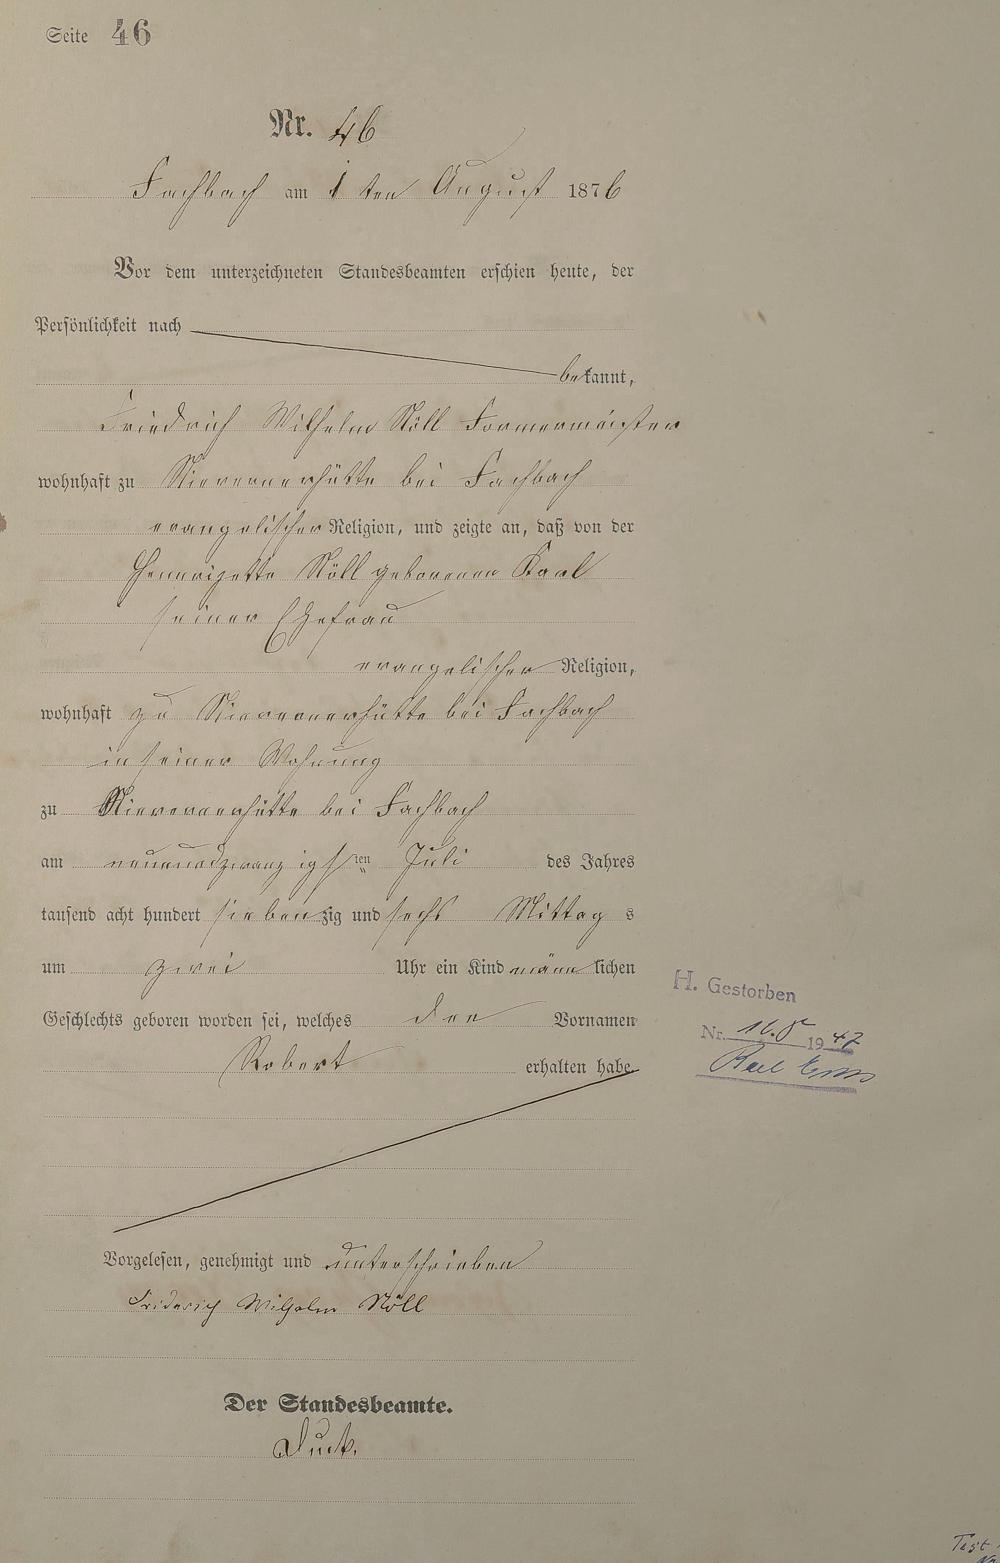 Seite 46
Nr. 46
Fachbach am 1 ten August 1876
Vor dem unterzeichneten Standesbeamten erschien heute, der
Persönlichkeit nach
bekannt,
Friedrich Wilhelm Nöll Formermeister
wohnhaft zu Nievernerhütte bei Fachbach
evangelischer Religion, und zeigte an, daß von der
Hennrizette Nöll geborenen Karl
seiner Ehefrau
evangelischer Religion,
wohnhaft zu Nievernerhütte bei Fachbach
in seiner Wohnung
zu Nievernerhütte bei Fachbach
am neunundzwanzigsten Juli des Jahres
tausend acht hundert siebenzig und sechs Mittags
um zwei Uhr ein Kind männlichen
Geschlechts geboren worden sei, welches den Vornamen
Robert erhalten habe
H. Gestorben
Nr. 1947
Vorgelesen, genehmigt und unterschrieben
Friderich Wilhelm Nöll
Der Standesbeamte.